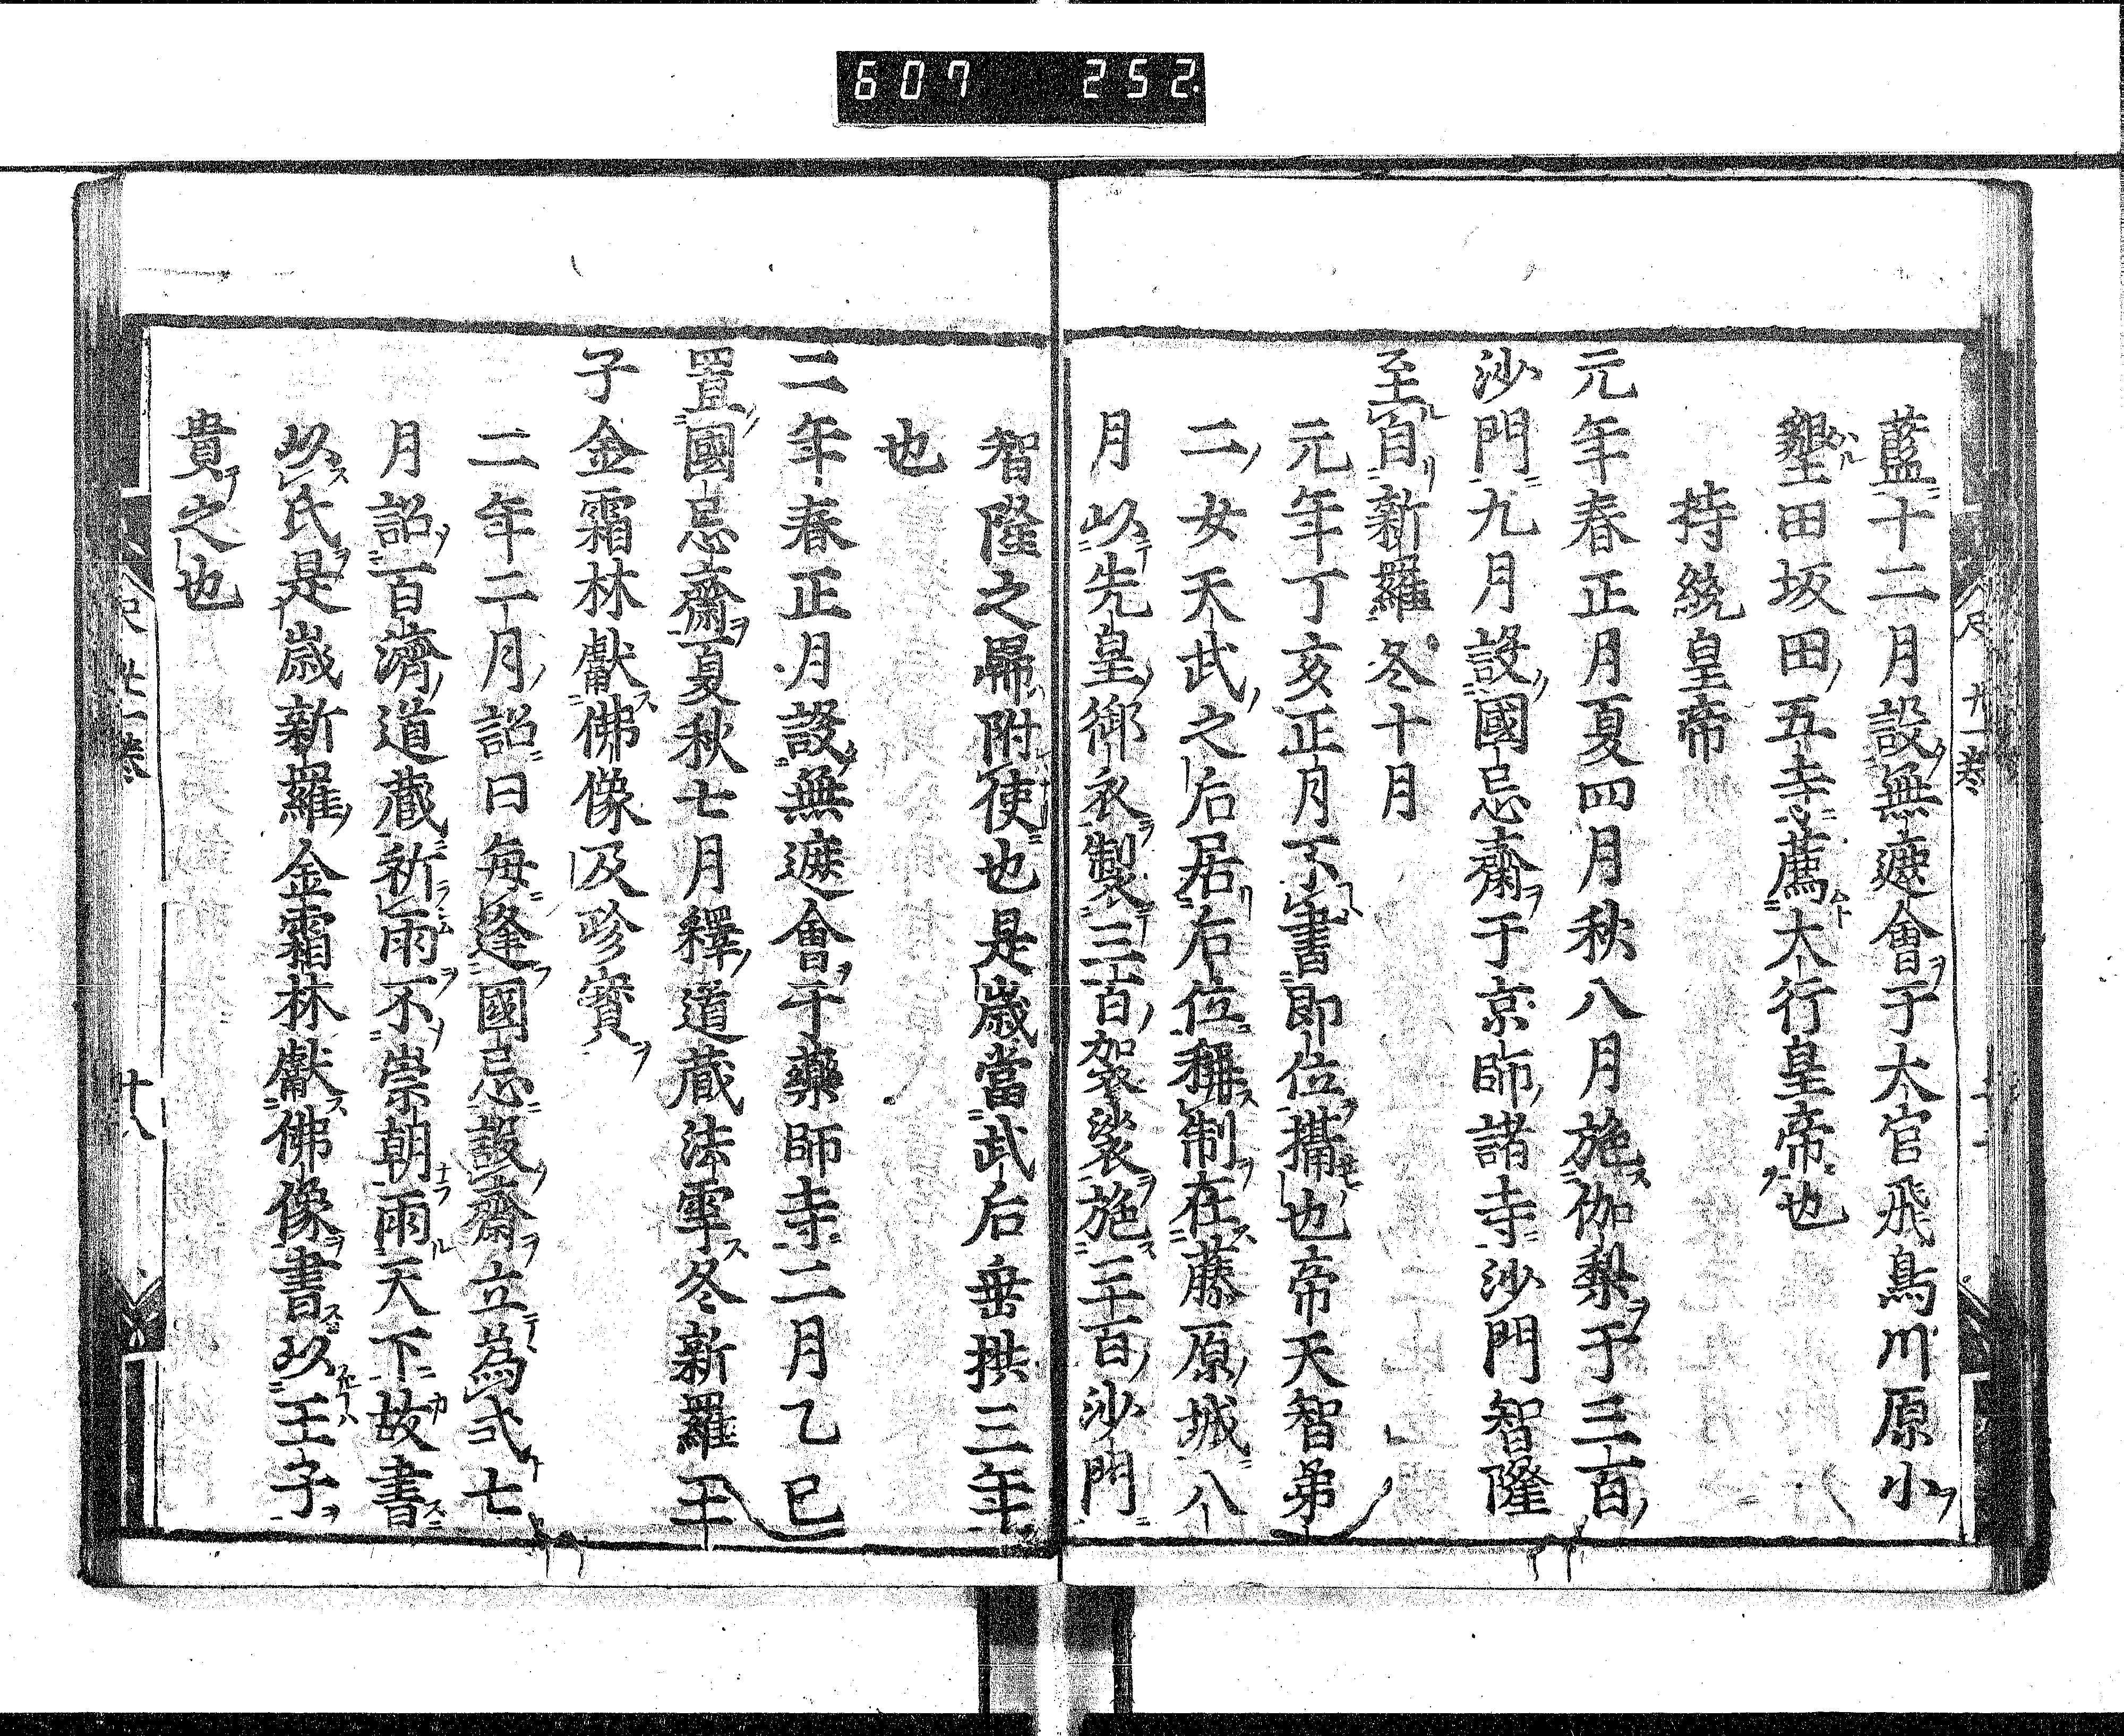 607 252
藍十二月設無遮會于大官飛鳥川原小
墾田坂田五寺薦大行皇帝也
持統皇帝
元年春正月夏四月秋八月施伽梨于三百
沙門九月設國忌齋于京師諸寺沙門智隆
至自新羅冬十月
元年丁亥正月不書即位攝也帝天智弟
二女天武之后居后位稱制在藤原城八
月以先皇御衣製三百袈裟施三百沙門
智隆之歸附使也是歳當武后垂拱三年
也
二年春正月設無遮會于藥師寺二月乙巳
置國忌齋夏秋七月釋道藏法雩冬新羅王
子金霜林獻佛像及珍寶
二年二月詔曰毎逢國忌設齋立為式七
月詔百濟道蔵祈雨不崇朝雨天下故書
以氏是歳新羅金霜林獻佛像書以王子
貴之也
廿一巻
十八